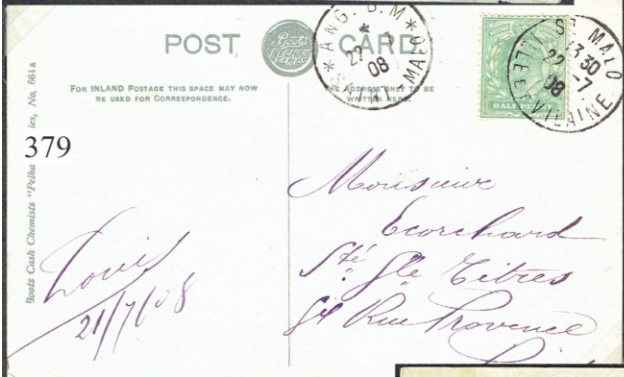 POST CARD
Boots Cash Chemists
FOR INLAND POSTAGE THIS SPACE MAY NOW
BE USED FOR CORRESPONDENCE.
THE ADDRESS ONLY TO BE
WRITTEN HERE.
ANG. B.M
22 7
08
SAINT MALO
HALF PENNY
ST MALO
13 30
22 -7
08
ILLE ET VILAINE
379
Boots Cash Chemists "Pelha ies, No. 664a
Louis
21/7/08
Monsieur
Ecorchard
Sté Gle Titres
Rue Provence